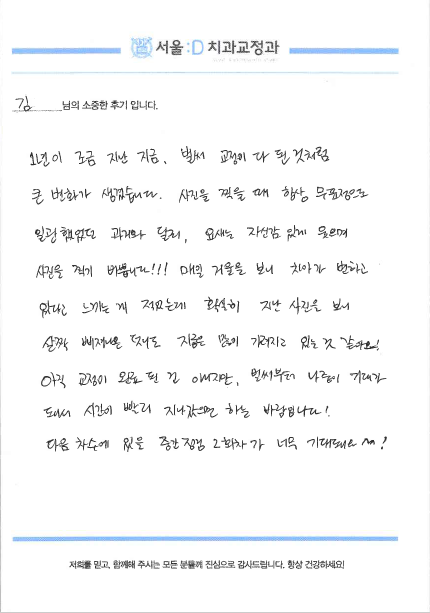 서울:D 치과교정과
김 님의 소중한 후기 입니다.
1년이 조금 지난 지금, 벌써 교정이 다 된 것처럼
큰 변화가 생겼습니다. 사진을 찍을 때 항상 무표정으로
일관했었던 과거와 달리, 요새는 자신감 있게 웃으며
사진을 찍기 바쁩니다!!! 매일 거울을 보니 치아가 변하고
있다고 느끼는 게 적었는데 확실히 지난 사진을 보니
살짝 삐져나온 덧니도 지금은 많이 가려지고 있는 것 같아요!
아직 교정이 완료 된 건 아니지만, 벌써부터 나름의 기대가
되어서 시간이 빨리 지나갔으면 하는 바람입니다!
다음 차수에 있을 중간점검 2회차가 너무 기대돼요 ~!
저희를 믿고, 함께해 주시는 모든 분들께 진심으로 감사드립니다. 항상 건강하세요!